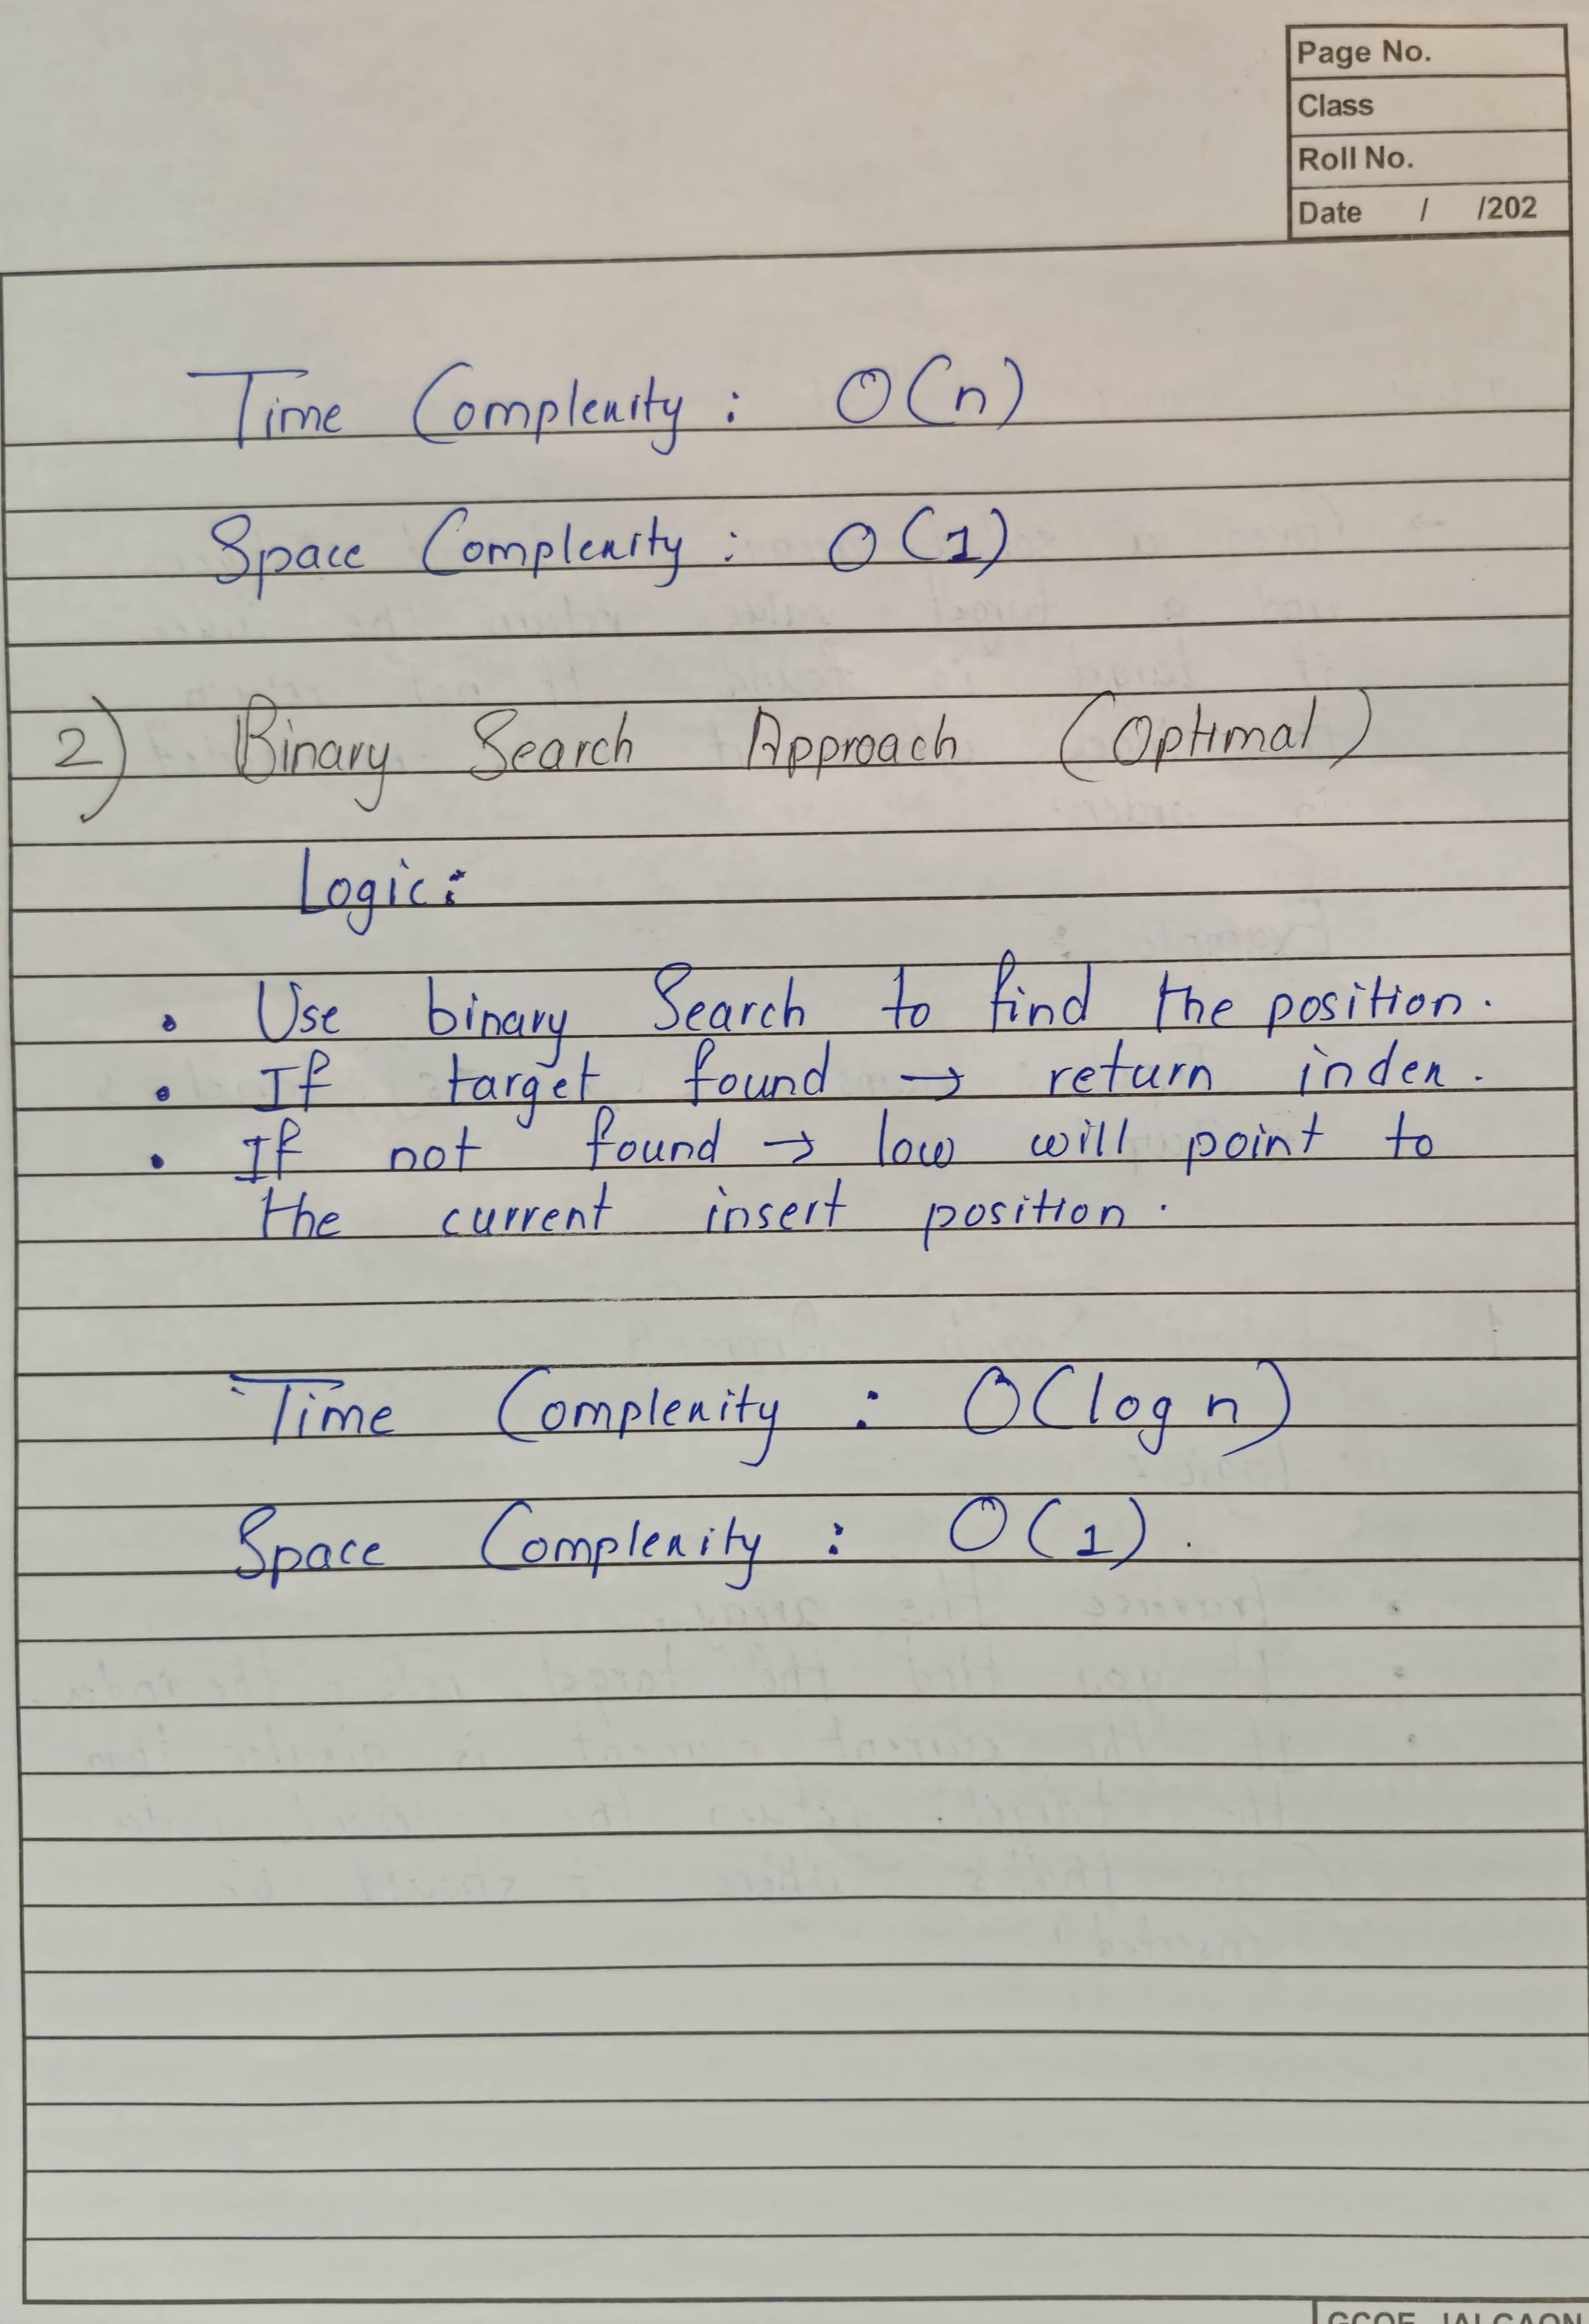 Page No.
Class
Roll No.
Date / /202
Time Complexity : O(n)
Space Complexity : O(1)
2) Binary Search Approach (Optimal)
Logic:
• Use binary Search to find the position.
• If target found → return index.
• If not found → low will point to
the current insert position.
Time Complexity : O(log n)
Space Complexity : O(1).